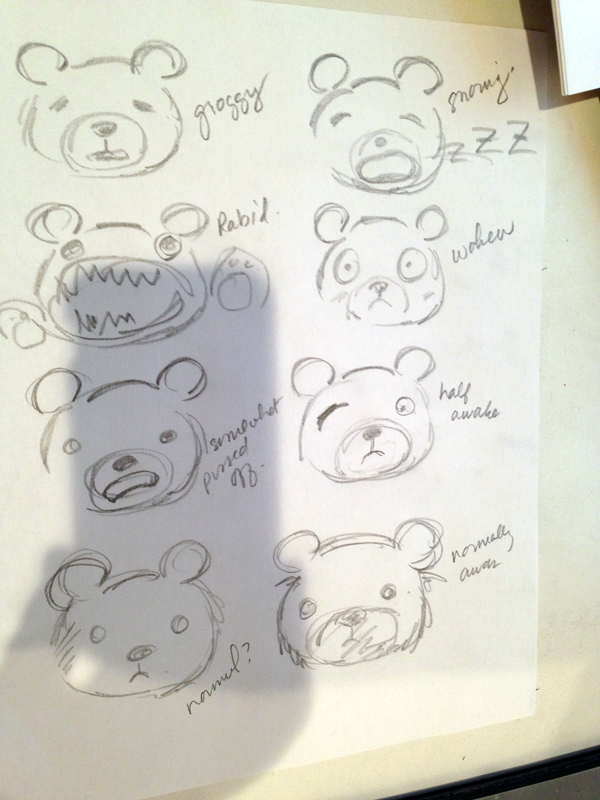 groggy
snoring.
zZZZ
Rabid.
woken
somewhat
pissed
off.
half
awake
normal?
normally
awake